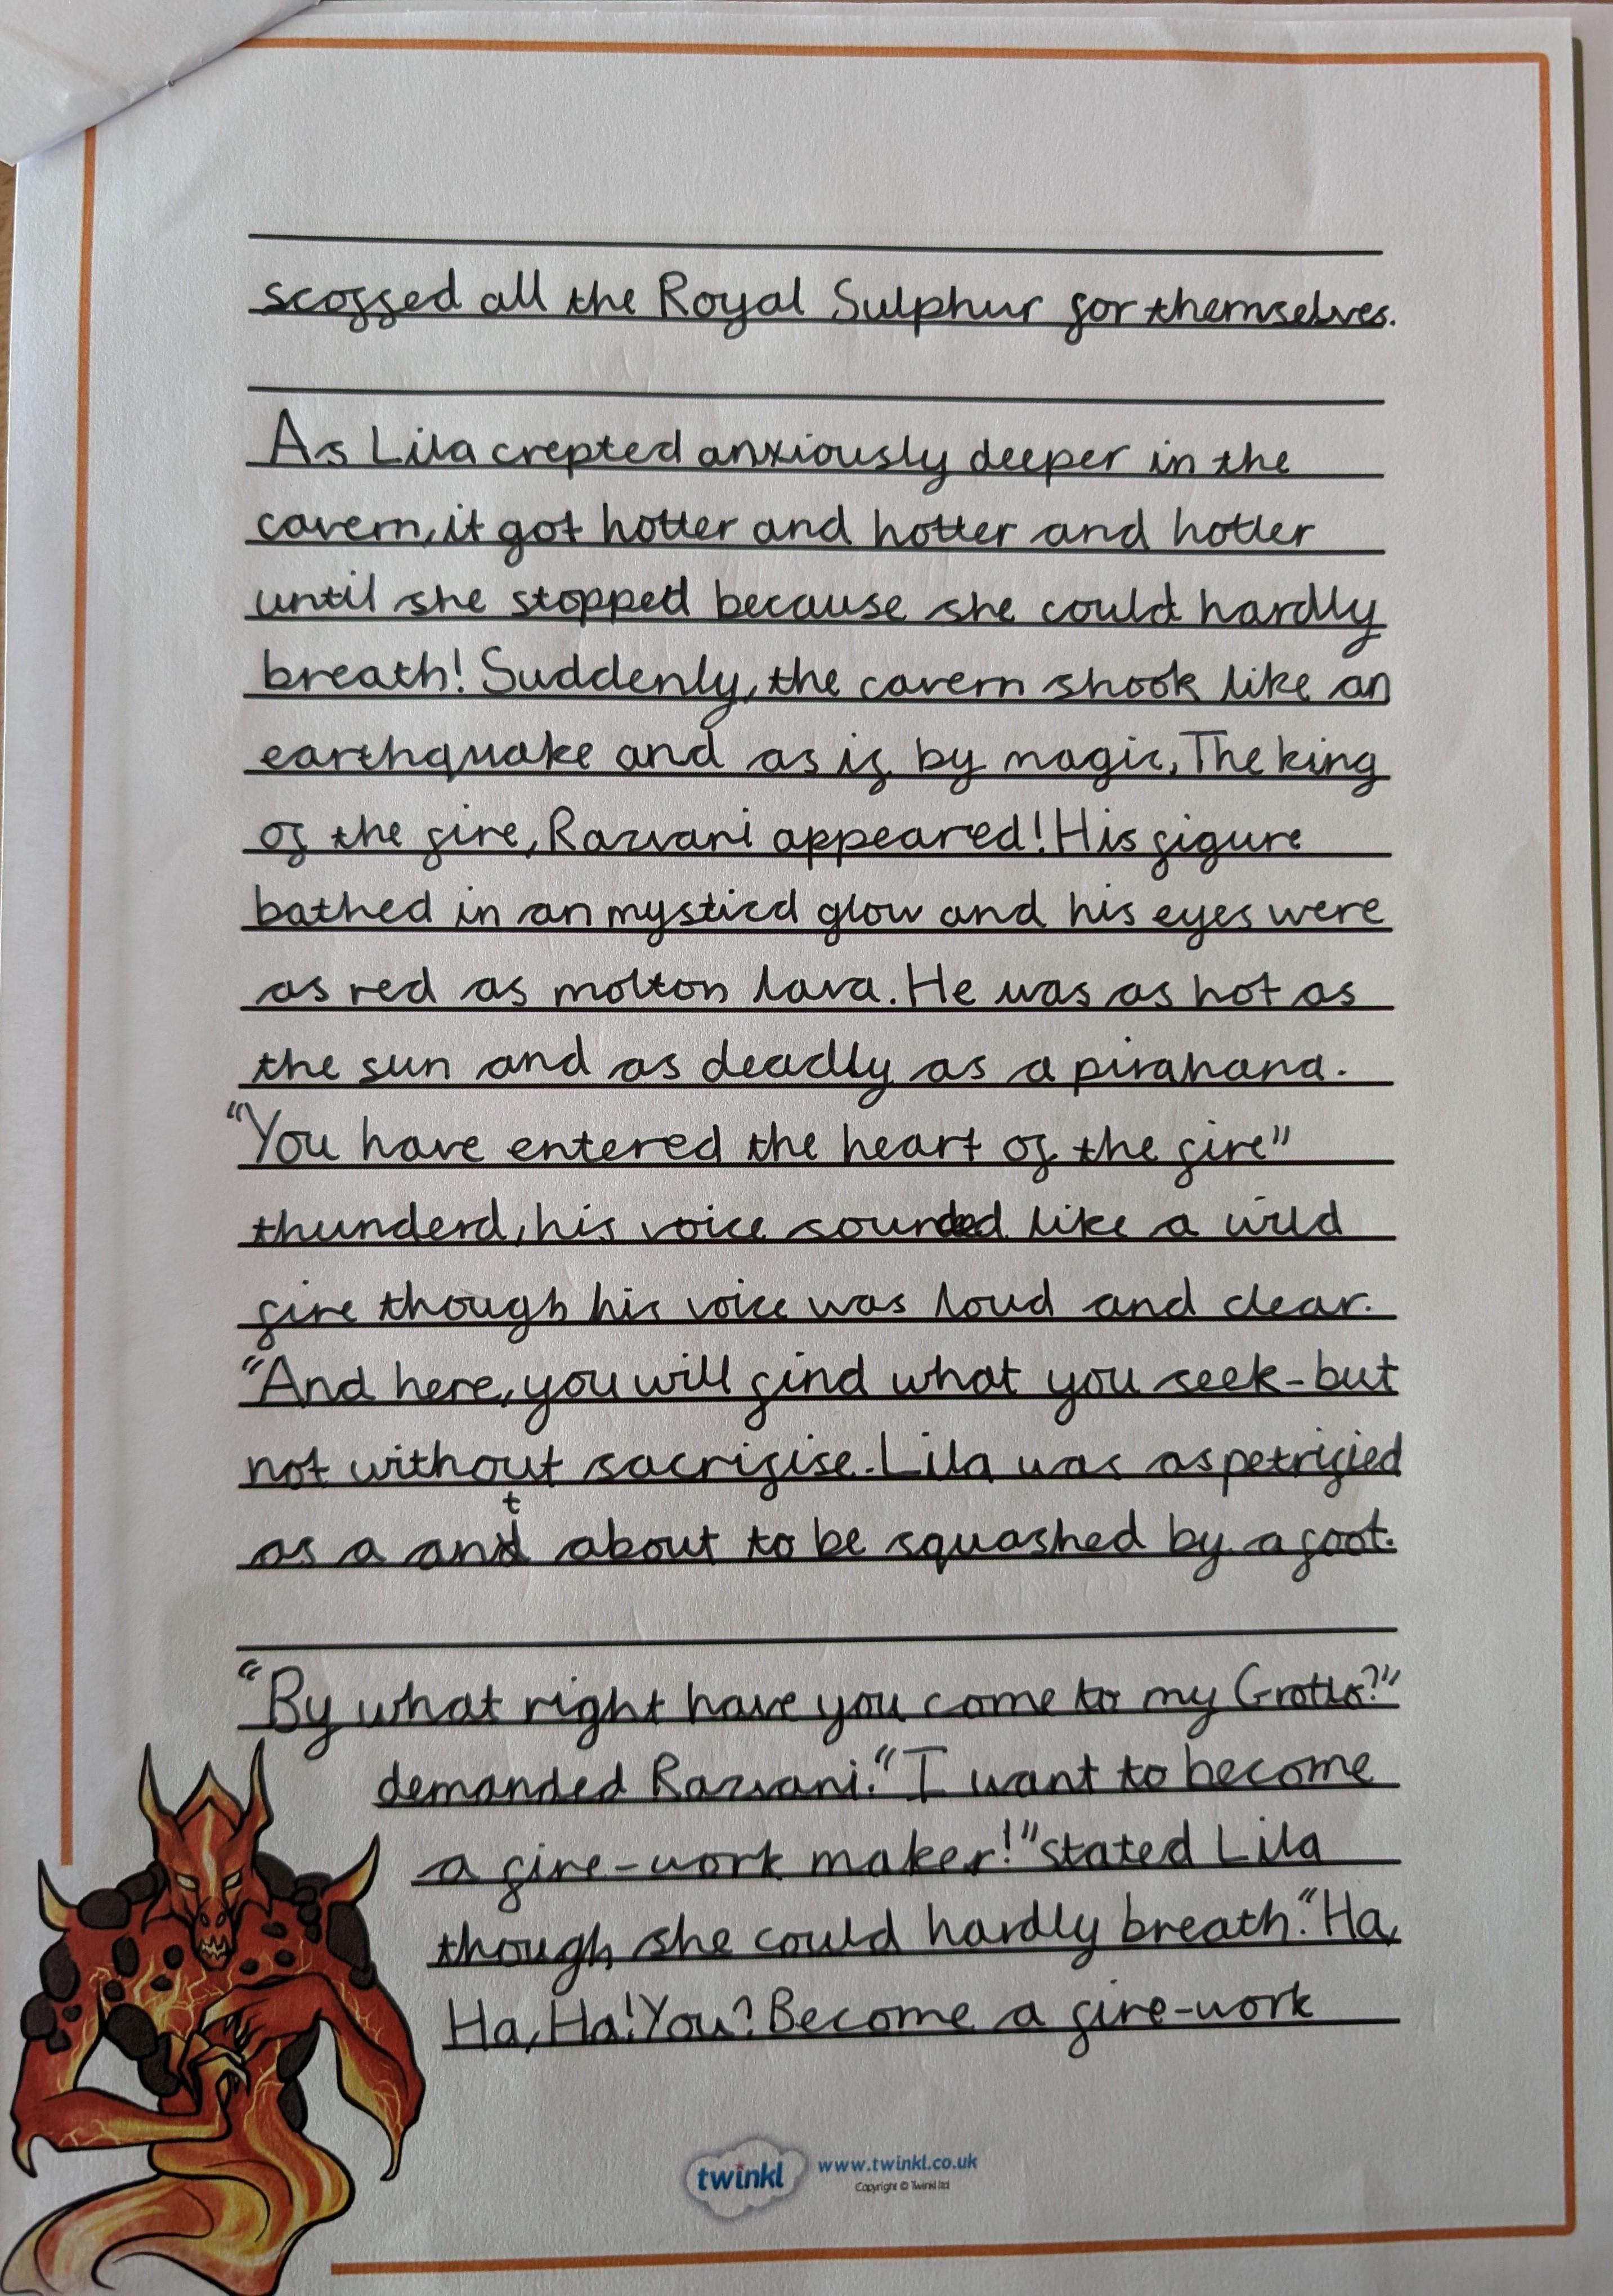 scoffed all the Royal Sulphur for themselves.
As Lila crepted anxiously deeper in the
cavern, it got hotter and hotter and hotter
until she stopped because she could hardly
breath! Suddenly, the cavern shook like an
earthquake and as if by magic, The king
of the fire, Razvani appeared! His figure
bathed in an mysticd glow and his eyes were
as red as molton lava. He was as hot as
the sun and as deadly as a pirahana.
"You have entered the heart of the fire"
thunderd, his voice sounded like a wild
fire though his voice was loud and clear.
"And here, you will find what you seek - but
not without sacrifise. Lila was as petrified
as a ant about to be squashed by a foot.
"By what right have you come to my Grotto?"
demanded Razvani. "I want to become
a fire-work maker!" stated Lila
though she could hardly breath. "Ha,
Ha, Ha! You? Become a fire-work
twinkl www.twinkl.co.uk
Copyright © Twinkl ltd